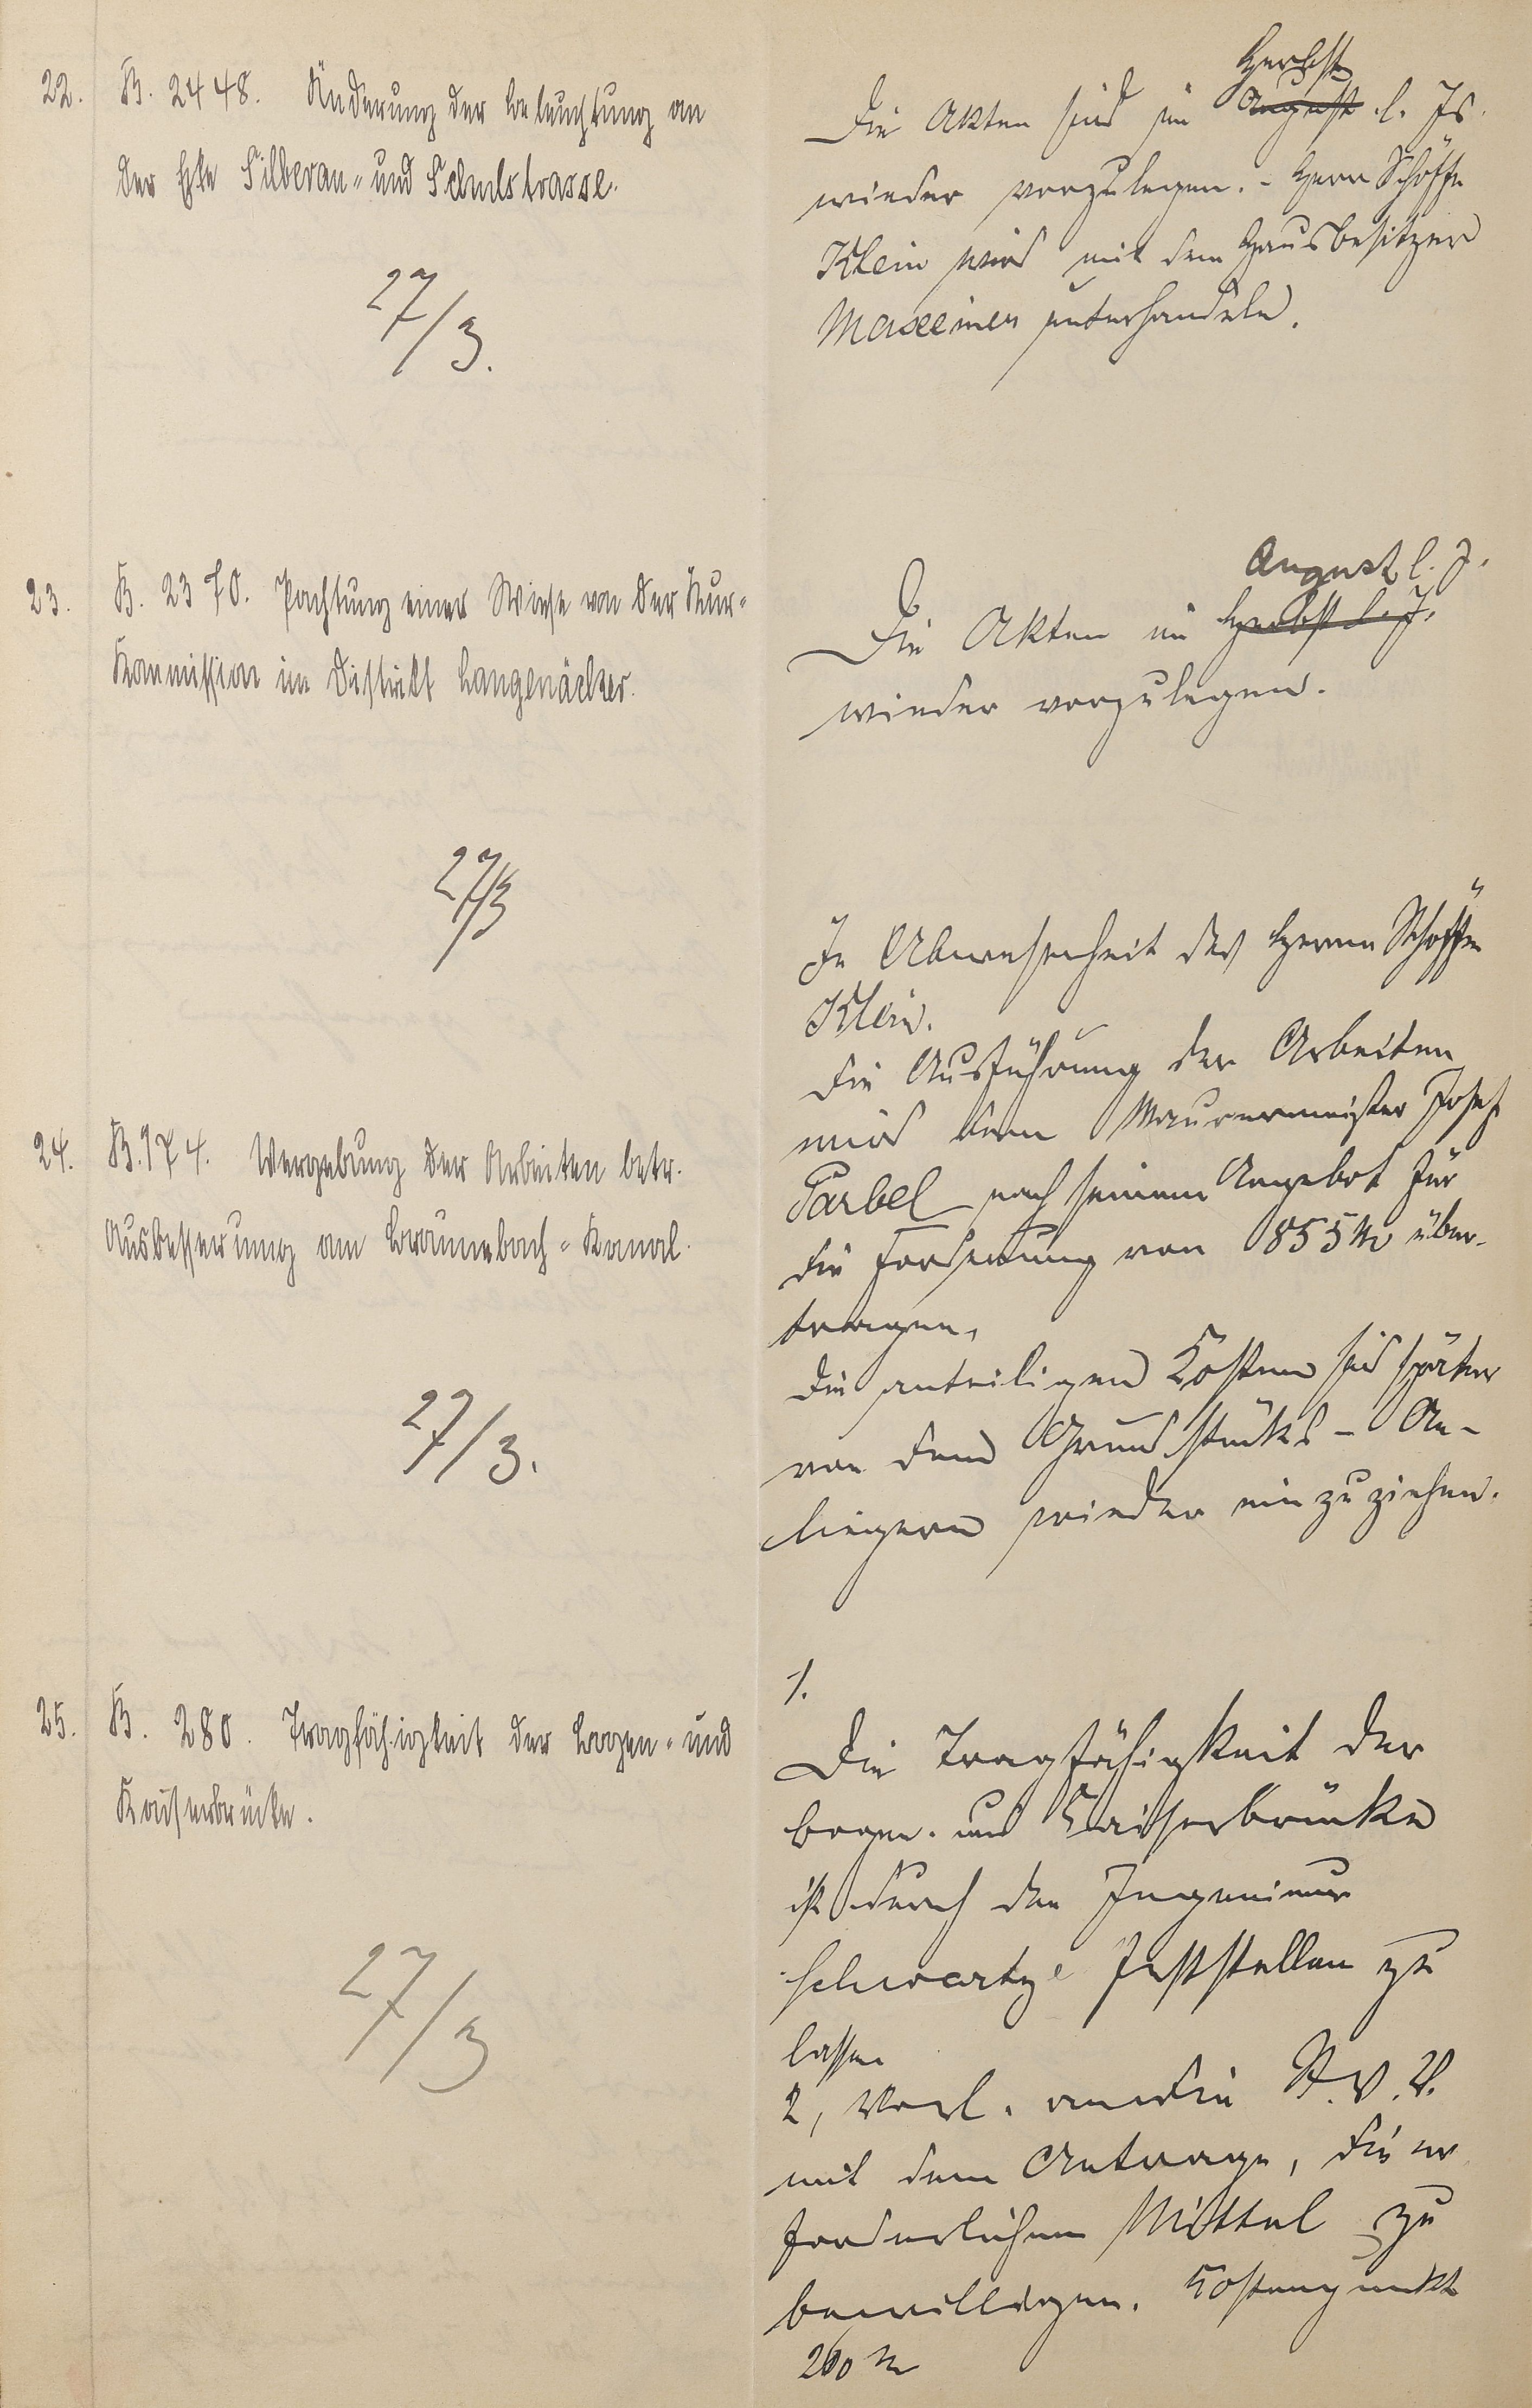 22. B. 2448. Änderung der Beleuchtung an
der Ecke Silberau- und Schulstrasse.
27/3.
Herbst
Die Akten sind im August l. Js.
wieder vorzulegen. - Herr Schöffe
Klein wird mit dem Hausbesitzer
unterhandeln.
23. B. 2370. Pachtung einer Wiese von der Kur-
Kommission im Distrikt Langenäcker.
27/3
August l. J.
Die Akten im Herbst l. J.
wieder vorzulegen.
24. B. 174. Vergebung der Arbeiten betr.
Ausbesserung am Braunebach-Kanal.
27/3.
In Abwesenheit des Herrn Schöffen
Klein.
Die Ausführung der Arbeiten
wird dem Maurermeister Josef
Parbel nach seinem Angebot für
die Forderung von 855 M über-
tragen.
Die anteiligen Kosten sind später
von den Grundstücks-An-
liegern wieder einzuziehen.
25. B. 280. Tragfähigkeit der Bogen- und
Kaiserbrücke.
27/3
1.
Die Tragfähigkeit der
Bogen- und Kaiserbrücke
ist durch den Ingenieur
Schwartze feststellen zu
lassen
2, Vorl. an die St. V. V.
mit dem Antrage, die er
forderlichen Mittel zu
bewilligen. Kostenpunkt
200 M